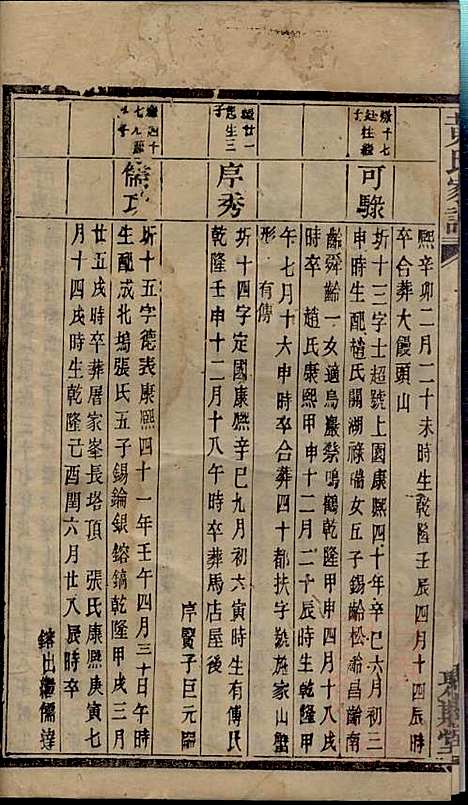 黃氏家譜
熙辛卯二月二十未時生乾隆壬辰四月十四辰時
卒合葬大饅頭山
可騄
圻十三字士超號上園康熙四十年辛巳六月初三
申時生配趙氏關湖祿瑞女五子錫齡松齡昌齡南
齡舜齡一女適烏巖蔡鳴鶴乾隆甲申四月十八戌
時卒 趙氏康熙甲申十二月二十辰時生乾隆甲
午七月十六申時卒合葬四十都扶字號施家山蟹
形 有傳
繼廿一
序秀
圻十四字定國康熙辛巳九月初六寅時生有傳氏
乾隆壬申十二月十八午時卒葬馬店屋後
序賢子巨元嗣
儒
圻十五字德表康熙四十一年王午四月三十日午時
生配成北塢張氏五子錫錀銀鎔鎬乾隆甲戌三月
廿五戌時卒葬屠家峯長塔頂 張氏康熙庚寅七
月十四戌時生乾隆己酉閏六月廿八辰時卒
鎔出繼儒達